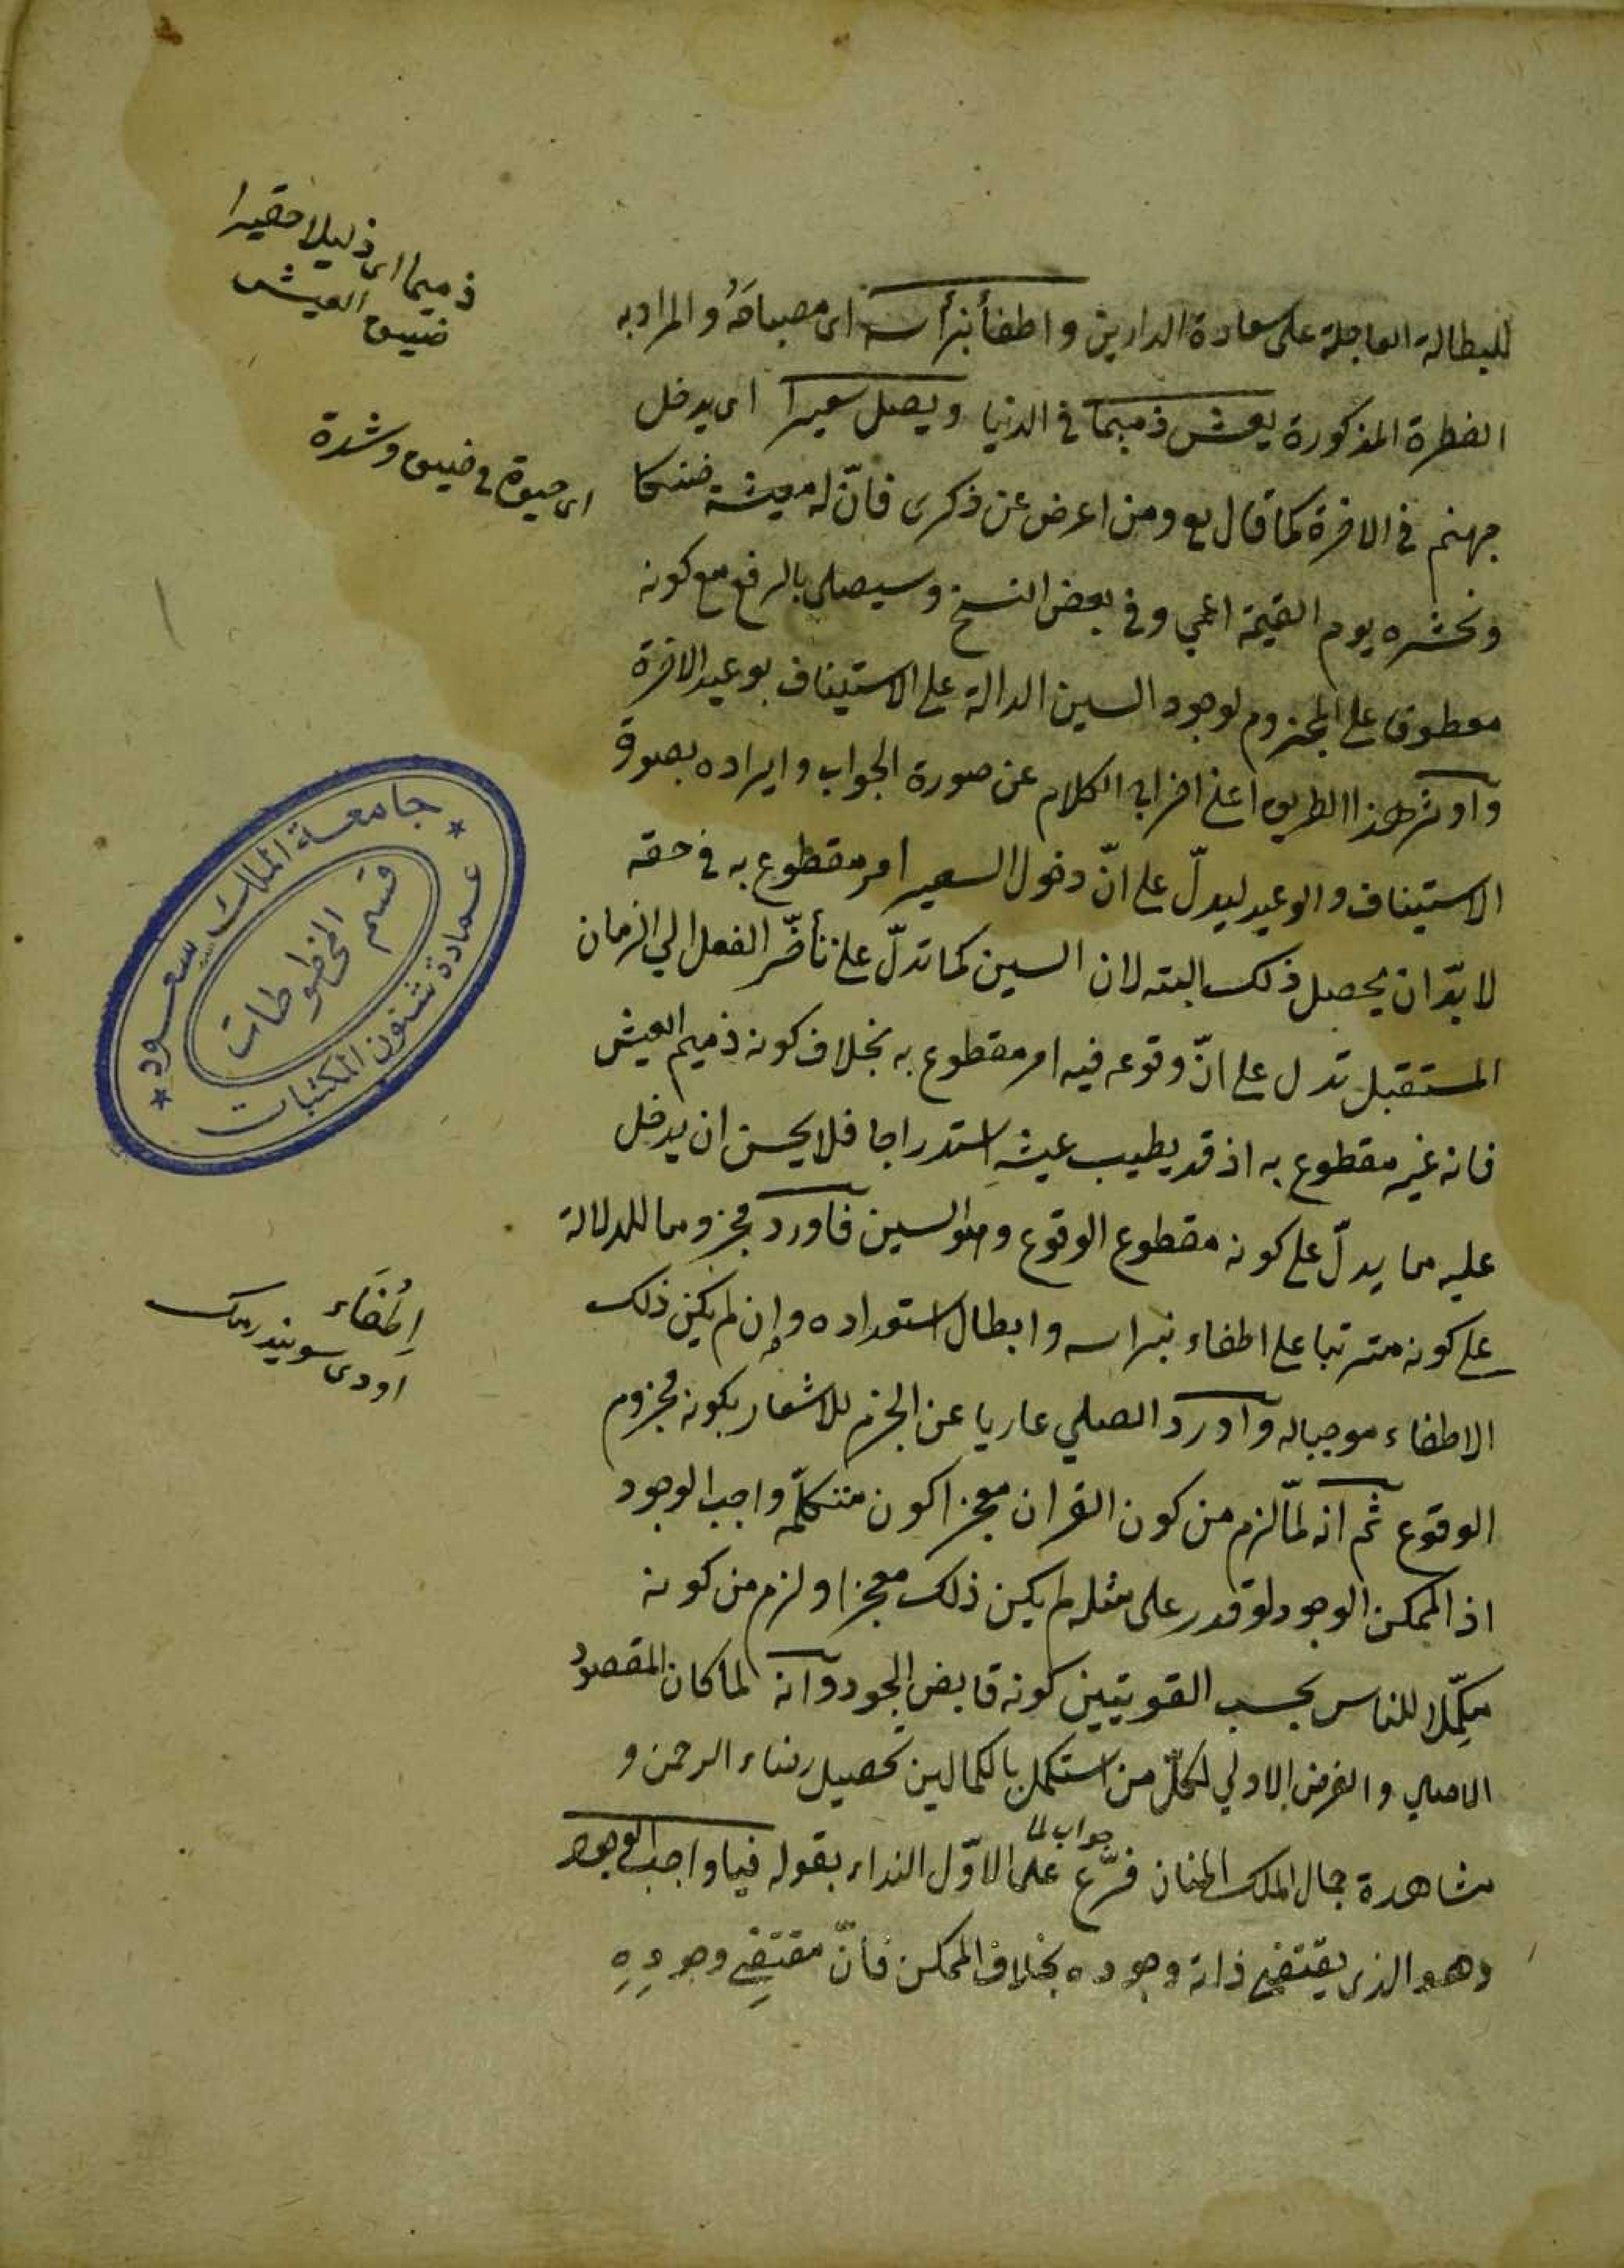 للبطالة العاجلة على سعادة الدارين واطفأ نبراسه اى مصباحَهُ والمراد به
الفطرة المذكورة يعش ذميما فى الدنيا ويصل سعيرا اى يدخل
جهنم فى الاخرة كما قال تع ومن اعرض عن ذكرى فانّ له معيشة ضنكا
ونحشره يوم القيمة اعمى وفى بعض النسخ وسيصلى بالرفع مع كونه
معطوفا على المجزوم لوجود السين الدالة على الاستيناف بوعيد الاخرة
واوثر هذا الطريق اعنى اخراج الكلام عن صورة الجواب وايراده بصورة
الاستيناف والوعيد ليدلّ على انّ دخول السعير امر مقطوع به فى حقه
لا بدّ ان يحصل ذلك البته لان السين كما تدلّ على تأخّر الفعل الي الزمان
المستقبل تدل على انّ وقوعه فيه امر مقطوع به بخلاف كونه ذميم العيش
فانه غير مقطوع به اذ قد يطيب عيشه استدراجا فلا يحسن ان يدخل
عليه ما يدلّ على كونه مقطوع الوقوع وهو السين فاورد مجزوما للدلالة
على كونه مترتبا على اطفاء نبراسه وابطال استعداده وإن لم يكن ذلك
الاطفاء موجبا له وآورد الصلي عاريا عن الجزم للاشعار بكونه مجزوم
الوقوع ثم انه لمّا لزم من كون القران معجزا كون متكلّمه واجب الوجود
اذ الممكن الوجود لو قدر على مثله لم يكن ذلك معجزا ولزم من كونه
مكمِّلا للناس بحسب القوتيين كونه فايض الجود وآنه لما كان المقصود
الاصلي والغرض الاولي لكلّ من استكمل بالكمالين تحصيل رضاء الرحمن و
جواب لما
مشاهدة جمال الملك المنان فرّع على الاوّل النداء بقوله فيا واجب الوجود
وهو الذى يقتضى ذاته وجوده بخلاف الممكن فانّ مقتضى وجودِهِ
ذميما اى ذليلا حقيرا
ضيق العيش
اى حيوة فى ضيق وشدة
جامعة الملك سعود
قسم
المخطوطات
عمادة شئون المكتبات
اِطْفَاء
اودى سوندرمك